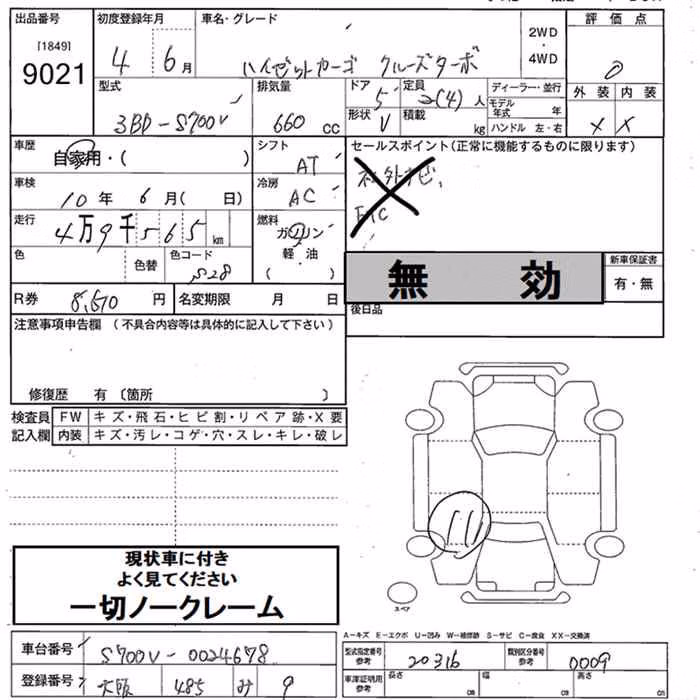 出品番号 初度登録年月 車名・グレード 評価点
[1849]
9021
4 6月
ハイゼットカーゴ クルーズターボ
2WD
4WD
0
型式 排気量 ドア 定員 ディーラー・並行 外装 内装
3BD-S700V 660 cc
5 2(4)人
モデル年式 年
形状 V 積載 kg
ハンドル 左・右
X X
車歴 自家用・( )
シフト AT
セールスポイント(正常に機能するものに限ります)
社外ナビ、
ETC
車検 10年 6月( 日)
冷房 AC
走行 4万9千565km
燃料 ガソリン
軽・油
( )
色 色替 色コード S28
無効
新車保証書
有・無
R券 8,670円 名変期限 月 日
後日品
注意事項申告欄 (不具合内容等は具体的に記入して下さい)
修復歴 有〔箇所 〕
検査員 FW キズ・飛石・ヒビ割・リペア跡・X要
記入欄 内装 キズ・汚レ・コゲ・穴・スレ・キレ・破レ
現状車に付き
よく見てください
一切ノークレーム
スペア
A-キズ E-エクボ U-凹み W-補修跡 S-サビ C-腐食 XX-交換済
車台番号 S700V-0024678
登録番号 大阪 485 み 9
型式指定番号 参考 20316 類別区分番号 参考 0009
車庫証明用 参考 長さ cm 幅 cm 高さ cm